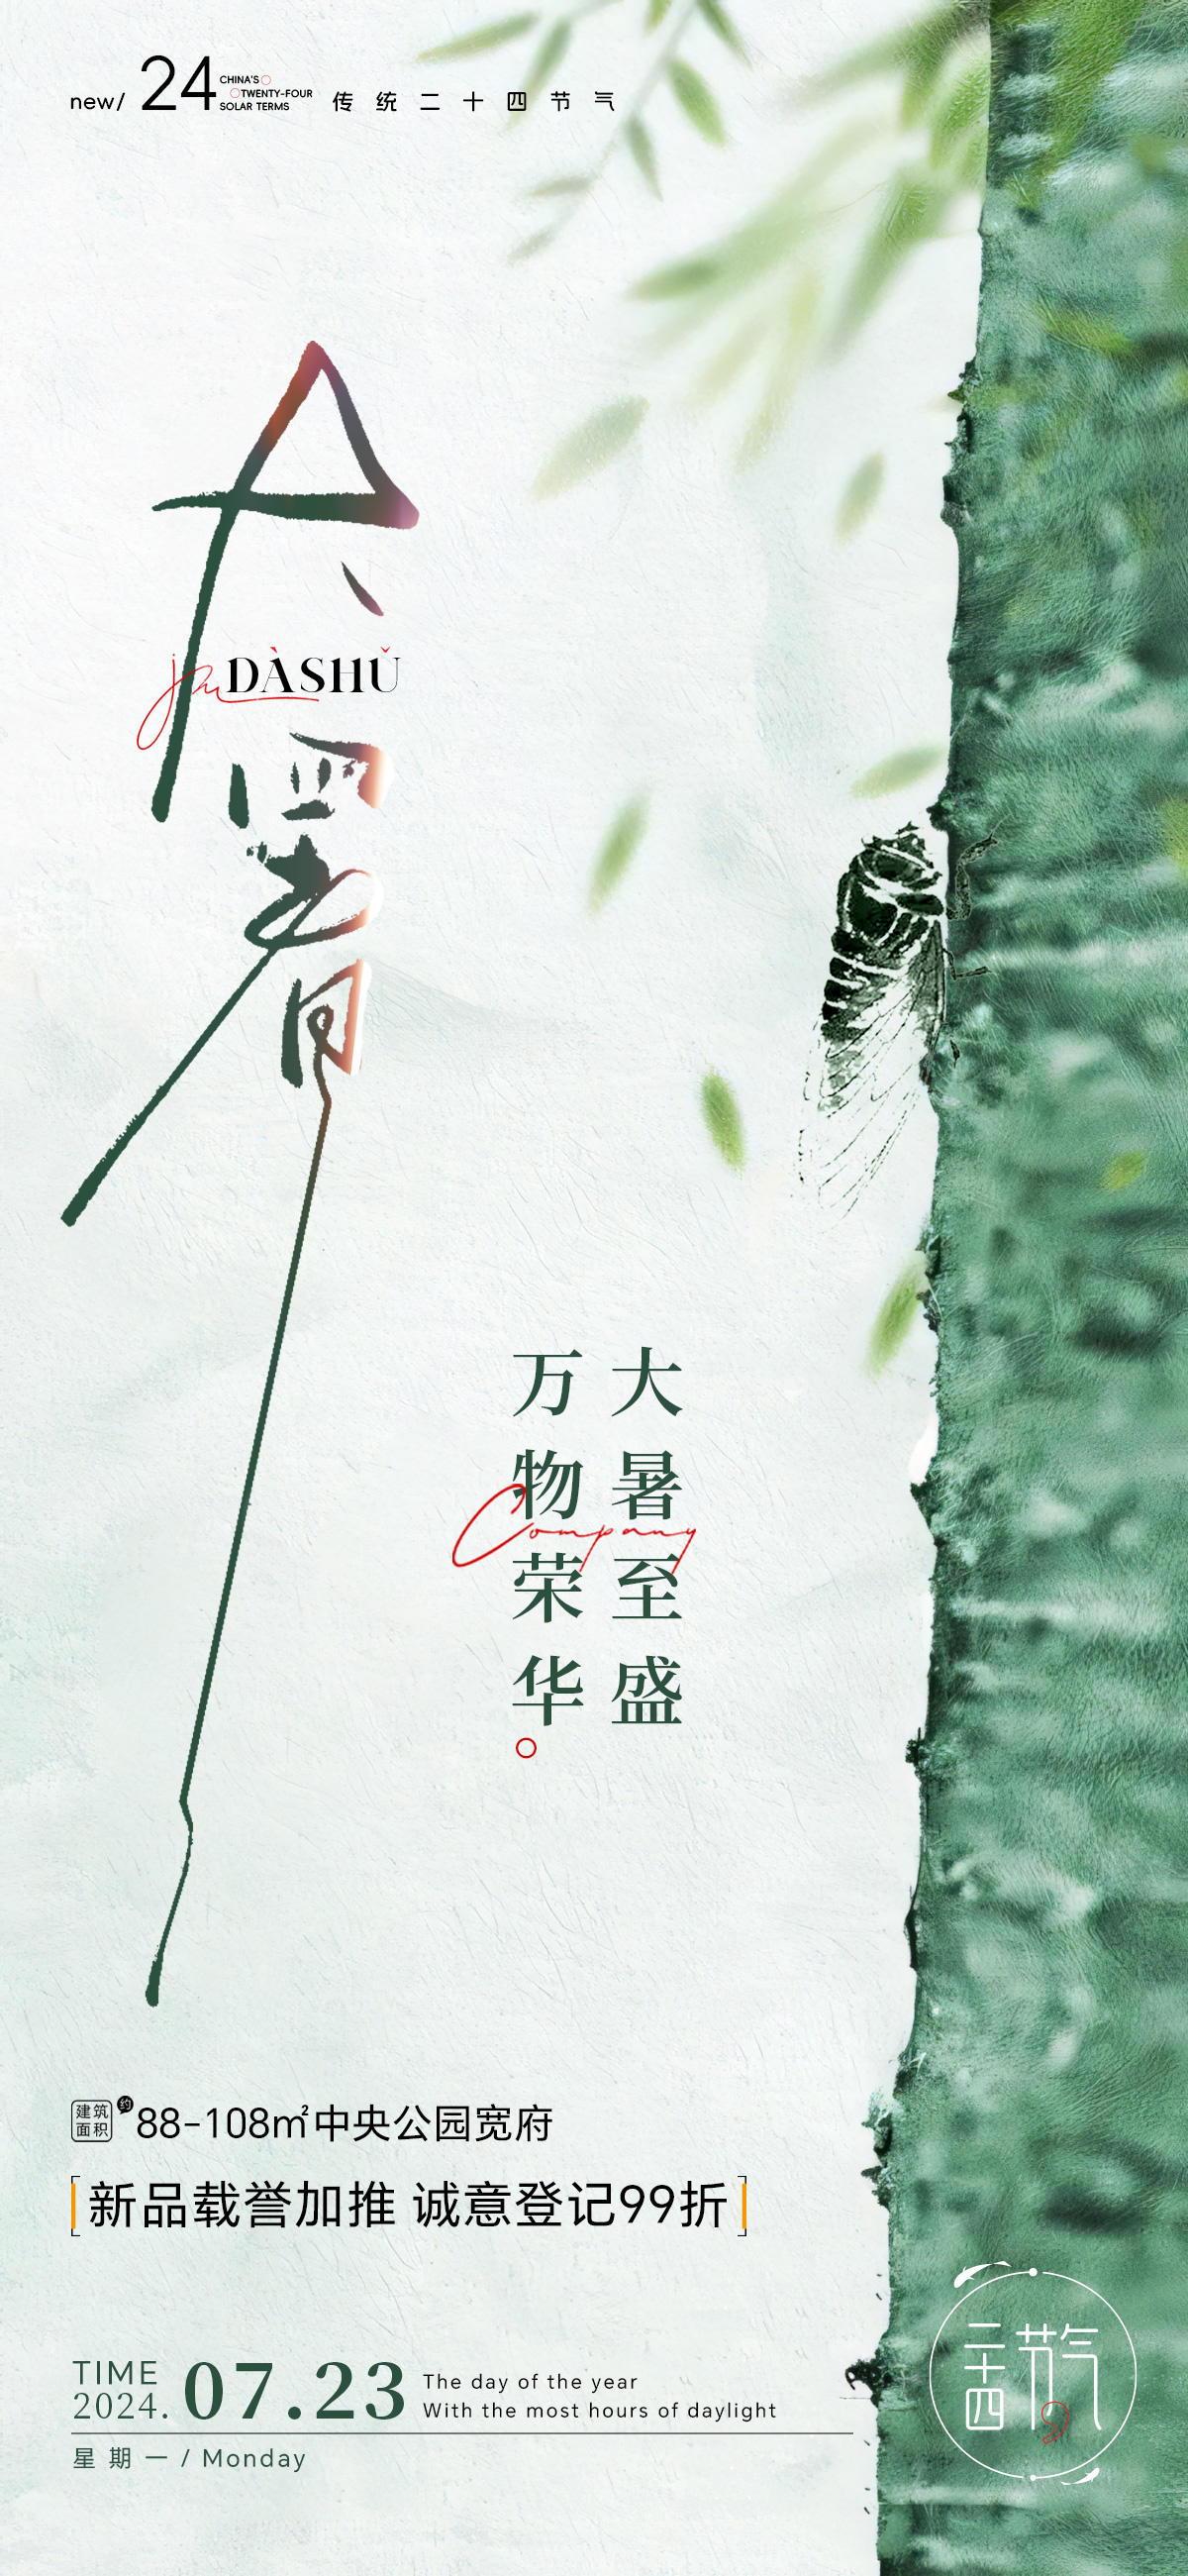 new/ 24 CHINA'S
TWENTY-FOUR
SOLAR TERMS
传统二十四节气
大暑
DÀSHǓ
大暑至盛
万物荣华
Company
建筑面积 约 88-108㎡中央公园宽府
新品载誉加推 诚意登记99折
TIME
2024. 07.23
The day of the year
With the most hours of daylight
星期一 / Monday
二十四节气